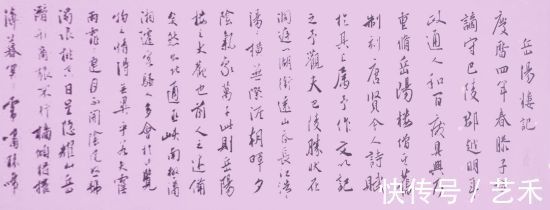 岳陽樓記
慶曆四年春滕子京
謫守巴陵郡越明年
政通人和百廢具興乃
重修岳陽樓增其舊
制刻唐賢今人詩賦
於其上屬予作文以記
之予觀夫巴陵勝狀在
洞庭一湖銜遠山吞長江浩浩
湯湯橫無際涯朝暉夕
陰氣象萬千此則岳陽
樓之大觀也前人之述備
矣然則北通巫峽南極瀟
湘遷客騷人多會於此覽
物之情得無異乎若夫霪
雨霏霏連月不開陰風怒號
濁浪排空日星隱耀山岳
潛形商旅不行檣傾楫摧
薄暮冥冥虎嘯猿啼
快传号/艺术